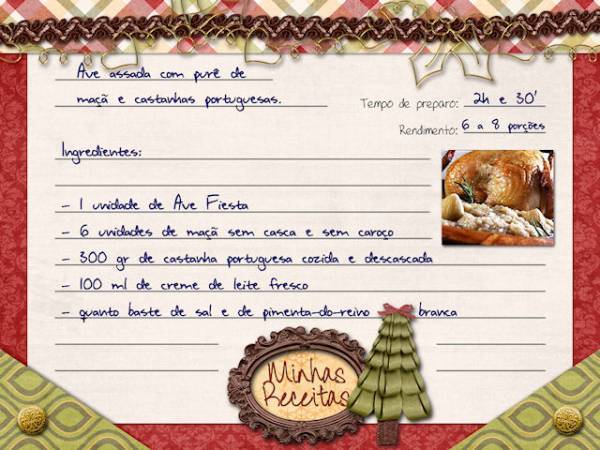 Ave assada com purê de
maçã e castanhas portuguesas.
Tempo de preparo: 2h e 30'
Rendimento: 6 a 8 porções
Ingredientes:
- 1 unidade de Ave Fiesta
- 6 unidades de maçã sem casca e sem caroço
- 300 gr de castanha portuguesa cozida e descascada
- 100 ml de creme de leite fresco
- quanto baste de sal e de pimenta-do-reino branca
Minhas
Receitas